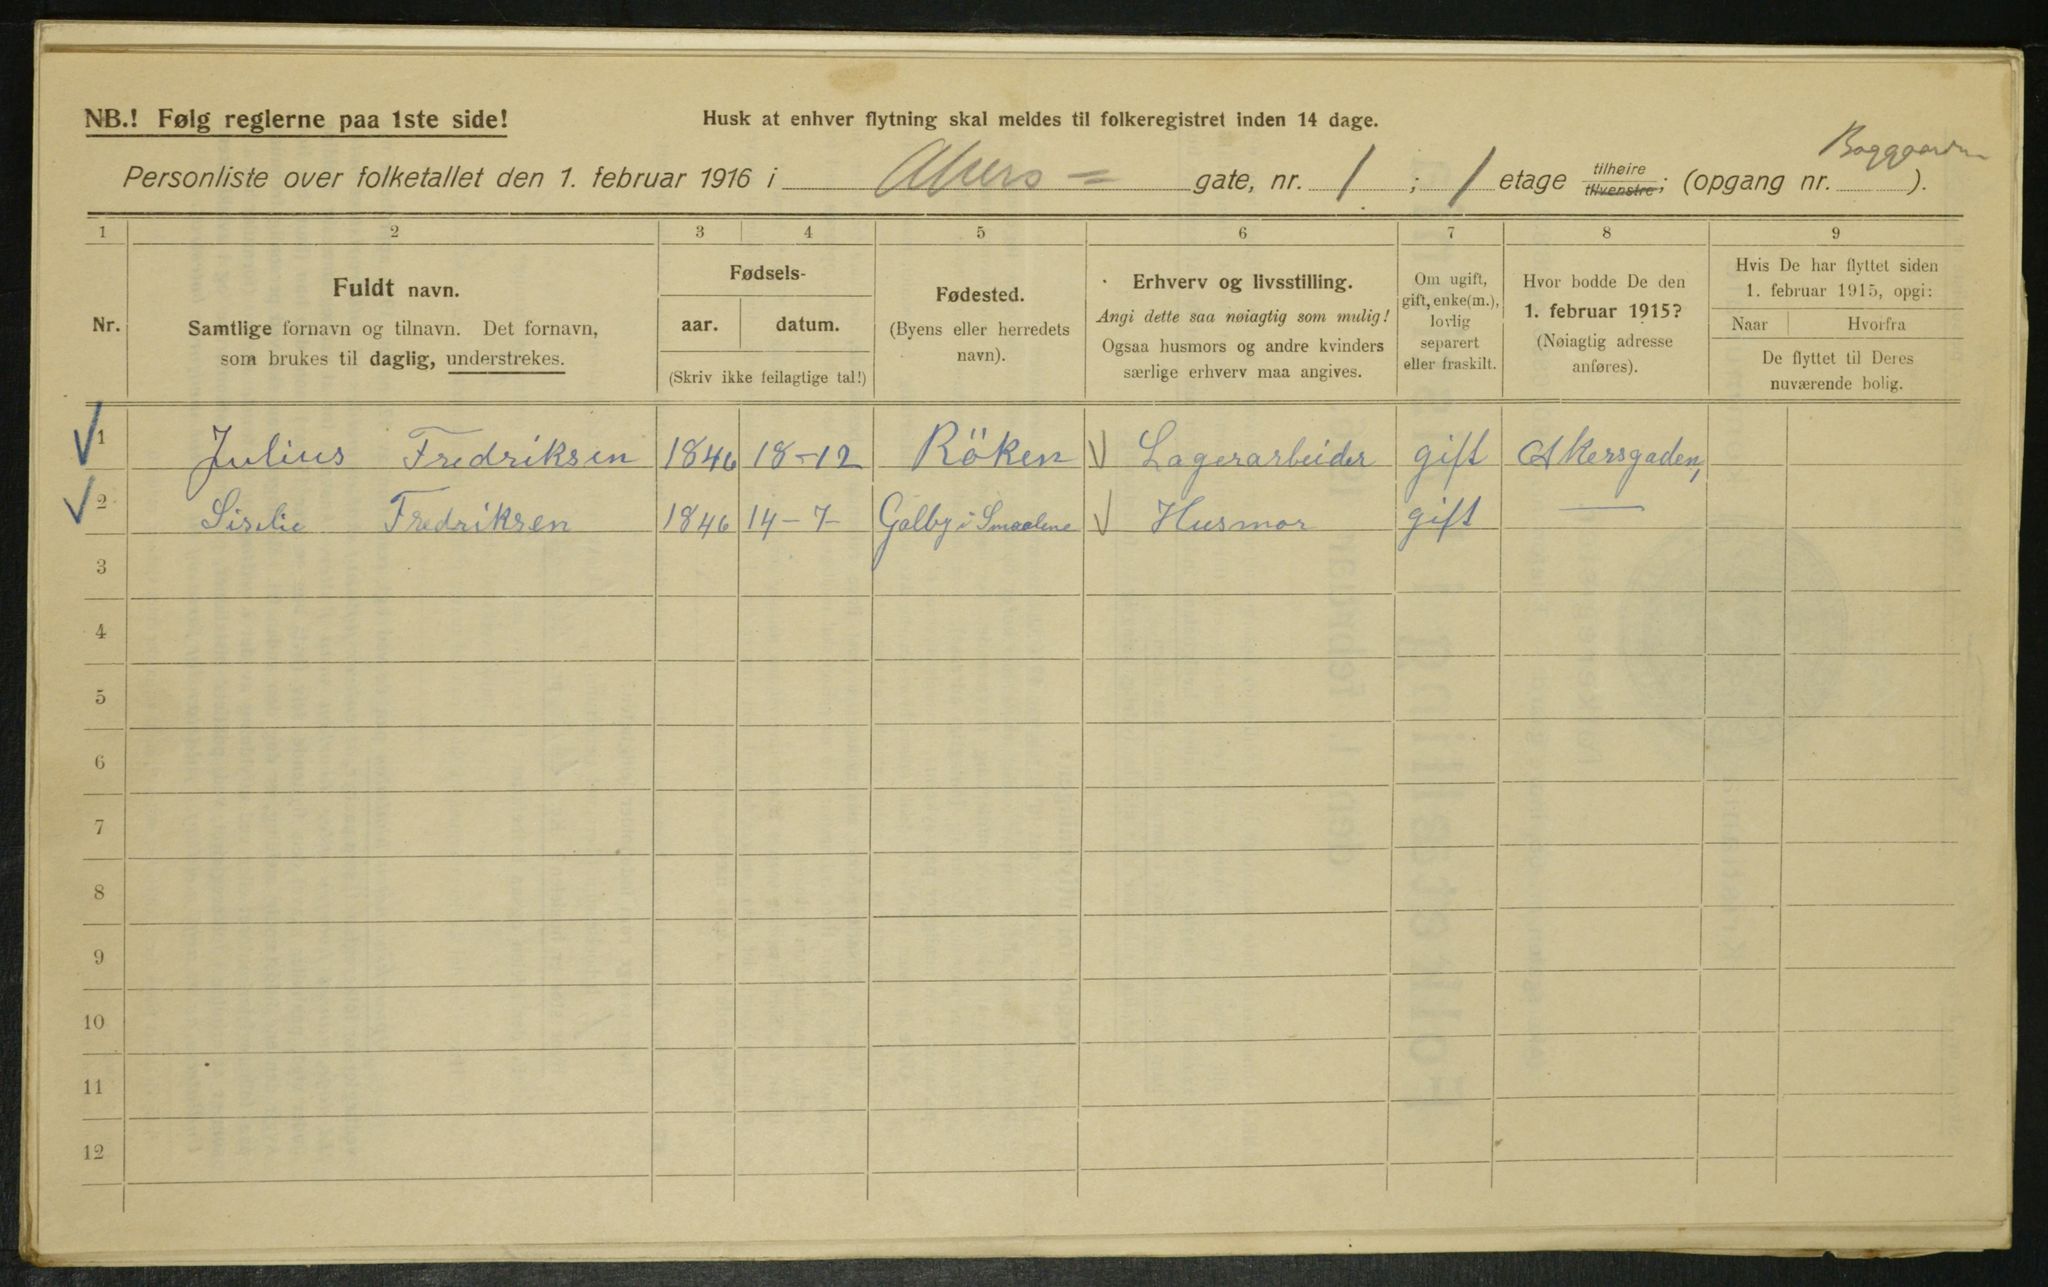 NB.! Følg reglerne paa 1ste side!
Husk at enhver flytning skal meldes til folkeregistret inden 14 dage.
Baggaarden
Personliste over folketallet den 1. februar 1916 i Akers = gate, nr. 1 ; 1 etage tilhøire tilvenstre; (opgang nr. ).
1 2 3 4 5 6 7 8 9
Nr.
Fuldt navn.
Samtlige fornavn og tilnavn. Det fornavn,
som brukes til daglig, understrekes.
Fødsels-
aar. datum.
(Skriv ikke feilagtige tal!)
Fødested.
(Byens eller herredets
navn).
Erhverv og livsstilling.
Angi dette saa nøiagtig som mulig!
Ogsaa husmors og andre kvinders
særlige erhverv maa angives.
Om ugift,
gift, enke(m.),
lovlig
separert
eller fraskilt.
Hvor bodde De den
1. februar 1915?
(Nøiagtig adresse
anføres).
Hvis De har flyttet siden
1. februar 1915, opgi:
Naar Hvorfra
De flyttet til Deres
nuværende bolig.
1 Julius Fredriksen 1846 18-12 Röken Lagerarbeider gift Akersgaden,
2 Siselie Fredriksen 1846 14-7- i Smaalene Husmor gift —
3
4
5
6
7
8
9
10
11
12